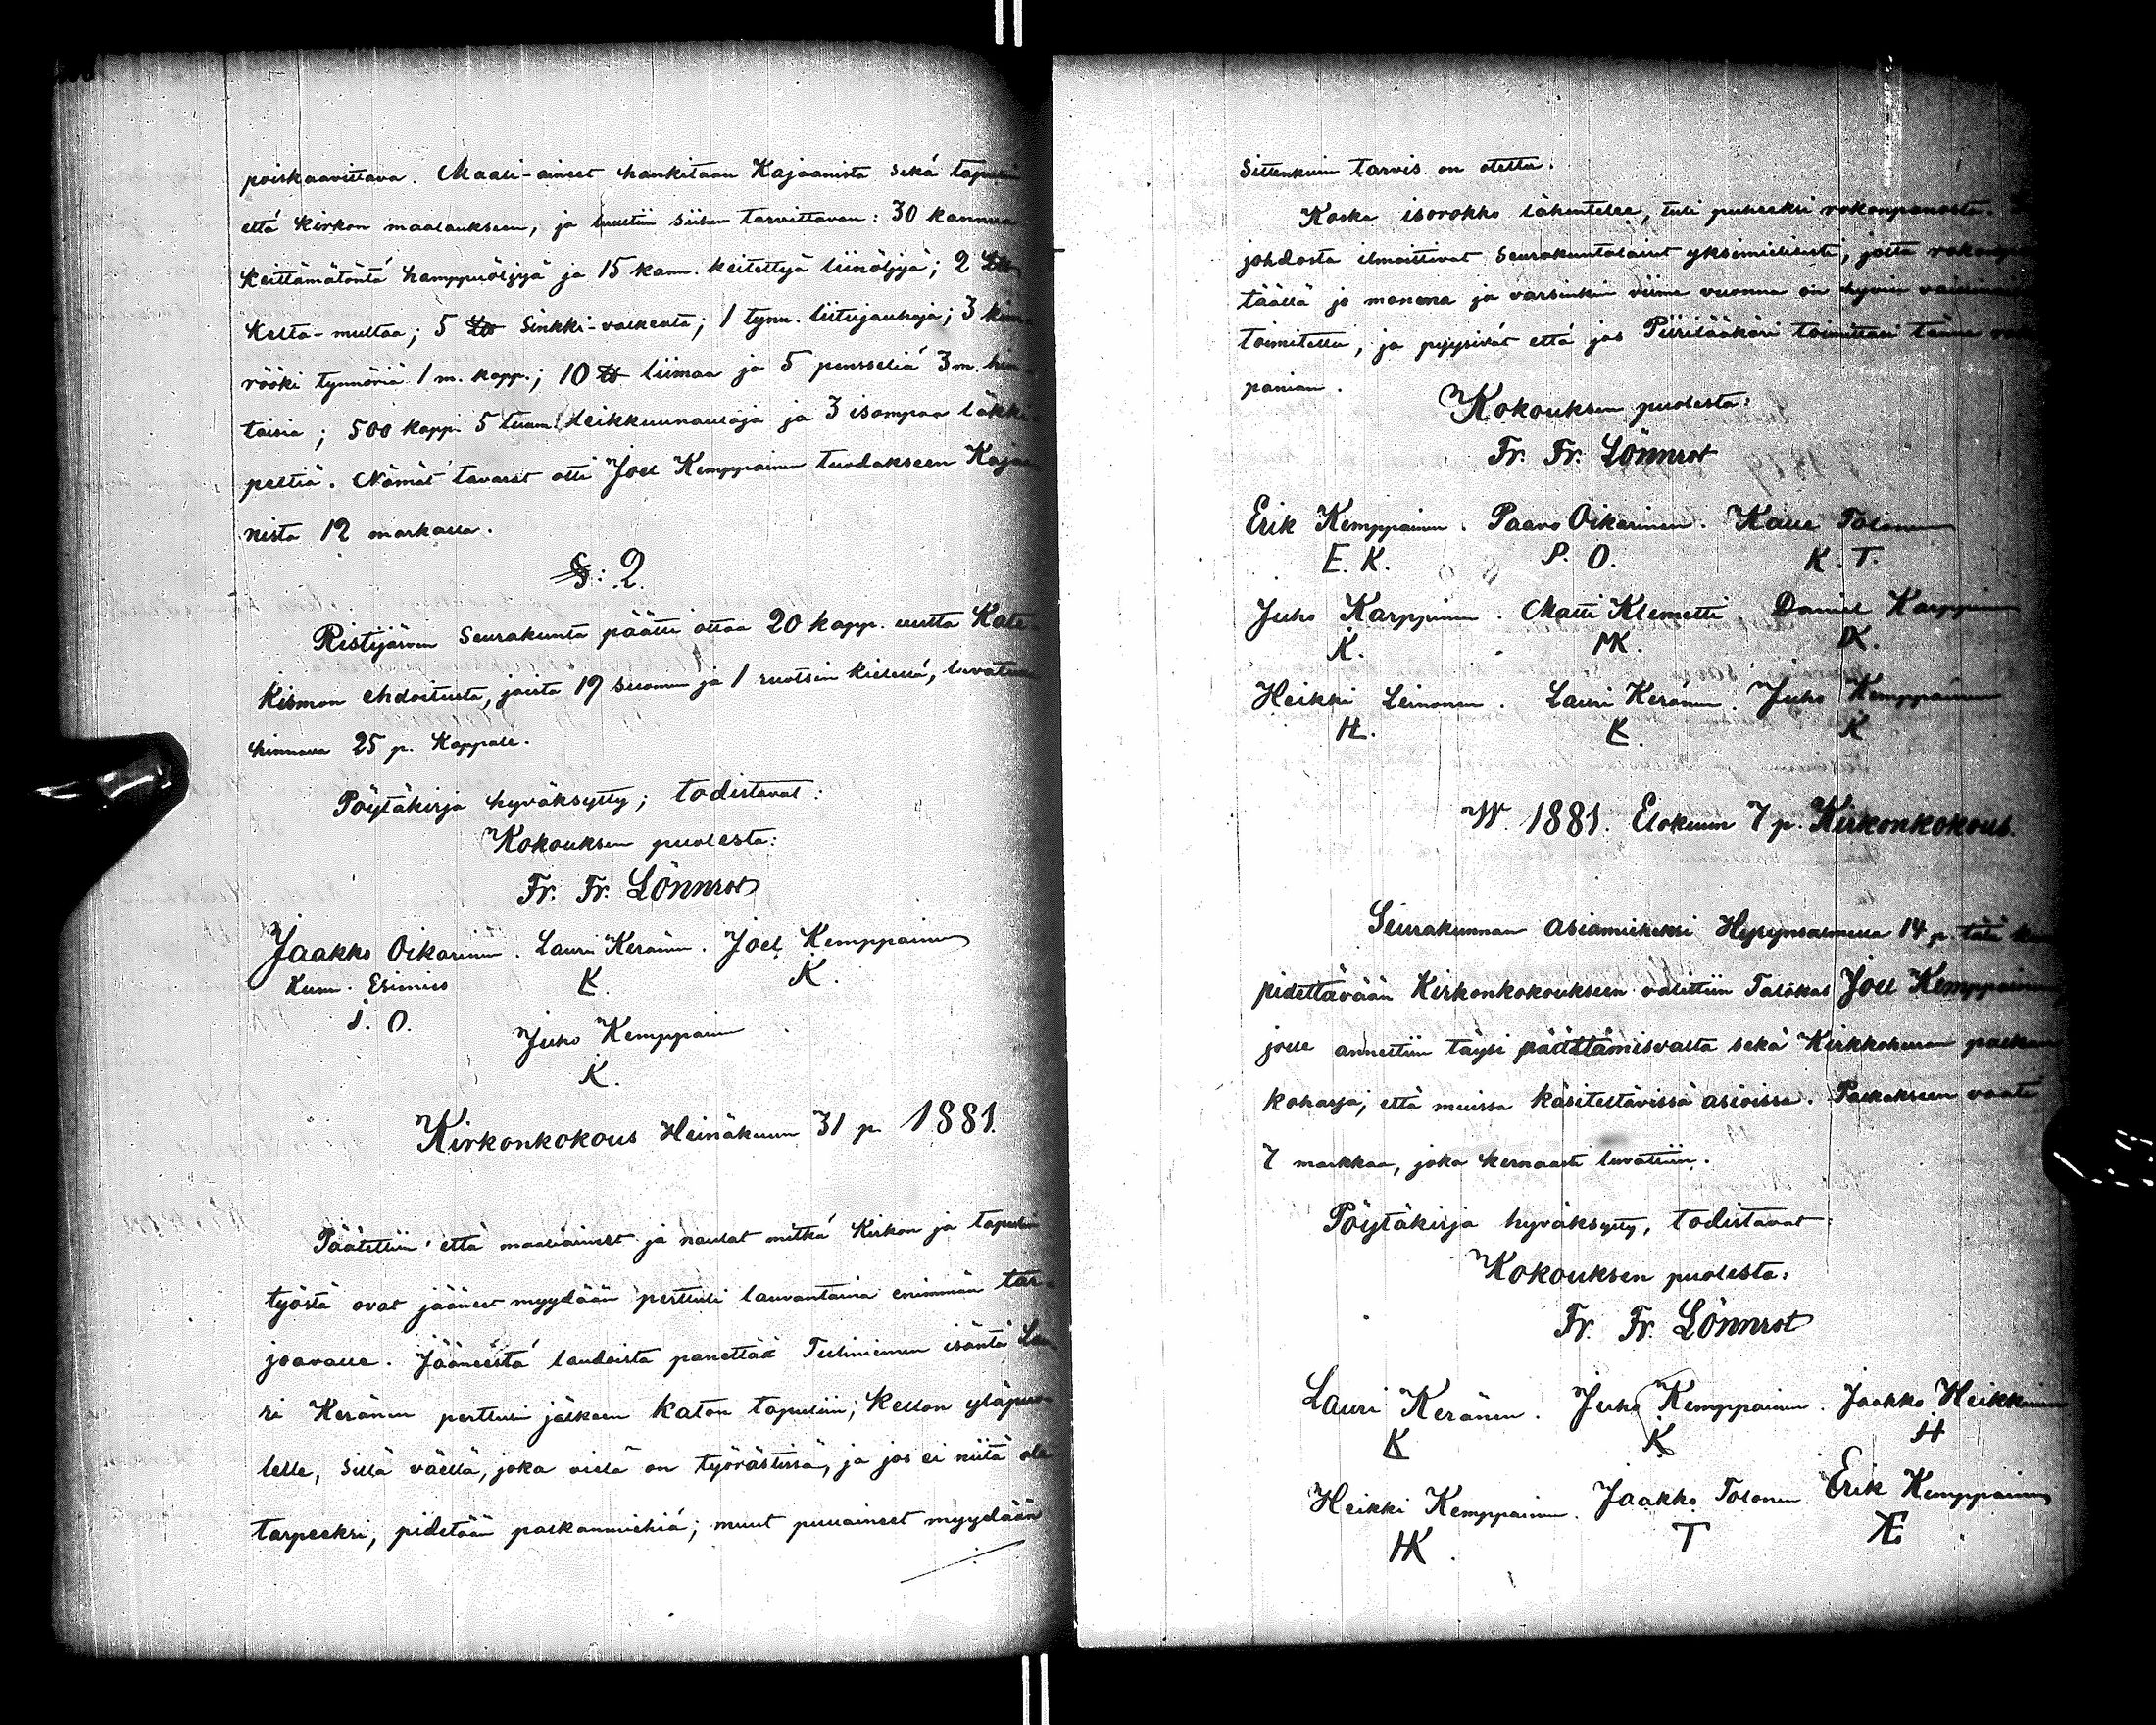 poiskaavittava. Maali-aineet hankitaan Kajaanista sekä tapulin
että kirkon maalaukseen, ja luultiin siihen tarvittavan: 30 kannua
keittämätöntä hamppuöljyä ja 15 kann. keitettyä liinöljyä; 2
Kelta-multaa; 5 Sinkki-valkeata; 1 tynn. liitujauhoja; 3
rööki tynnöriä 1 m. kapp.; 10 liimaa ja 5 pensseliä 3 m. hin-
taisia; 500 kapp. 5 tuum. leikkuunauloja ja 3 isompaa läkki
peltiä. Nämät tavarat otti Joel Kemppainen tuodakseen Kajaa-
nista 12 markalla.
§: 2.
Ristijärven Seurakunta päätti ottaa 20 kapp. uutta Kate-
kismon ehdoitusta, joista 19 suomen ja 1 ruotsin kielellä, luvatusta
hinnasta 25 p. Kappale.
Pöytäkirja hyväksytty; todistavat:
Kokouksen puolesta:
Fr. Fr. Lönnrot
Jaakko Oikarinen. Lauri Keränen. Joel Kemppainen
Kunn. Esimies K. K.
J. O.
Juho Kemppain
K.
Kirkonkokous Heinäkuun 31 p. 1881.
Päätettiin että maaliaineet ja naulat mitkä Kirkon ja tapulin
työstä ovat jääneet myydään perttuli lauvantaina enimmän tar-
joavalle. Jääneestä laudoista panettaa Tuliniemen isäntä Lau-
ri Keränen perttulin jälkeen katon tapuliin; Kellon yläpuo-
lelle, sillä väellä, joka vielä on työrästissä, ja jos ei niitä ole
tarpeeksi, pidetään palkanmiehiä; muut puuaineet myydään
Sittenkuin tarvis on otettu.
Koska isorokko lähentelee, tuli puheeksi rokonpanosta.
johdosta ilmoittivat Seurakuntalaiset yksimielisesti, jotta
täällä jo monena ja varsinkin viime vuonna on hyvin
toimitettu, ja pyysivät että jos Piirilääkäri toimittasi tänne
panian.
Kokouksen puolesta:
Fr. Fr. Lönnrot
Erik Kemppainen. Paavo Oikarinen. Kalle Tolonen
E. K. P. O. K. T.
Juho Karppinen. Matti Klemetti. Daniel Karppinen
K. MK. DK.
Heikki Leinonen. Lauri Keränen. Juho Kemppainen
HL. K. K
W. 1881. Elokuun 7 p. Kirkonkokous.
Seurakunnan asiamieheksi Hyrynsalmella 14 p. tätä kuu
pidettävään Kirkonkokoukseen valittiin Talokas Joel Kemppainen
jolle annettiin täysi päättämisvalta sekä Kirkkoherran palkan
koharja, että muissa käsiteltävissä asioissa. Palkakseen vaati
7 markkaa, joka kernaasti luvattiin.
Pöytäkirja hyväksytty, todistavat:
Kokouksen puolesta:
Fr. Fr. Lönnrot
Lauri Keränen. Juho Kemppainen. Jaakko Heikkinen
K K H
Heikki Kemppainen. Jaakko Tolonen. Erik Kemppainen
HK. T KE